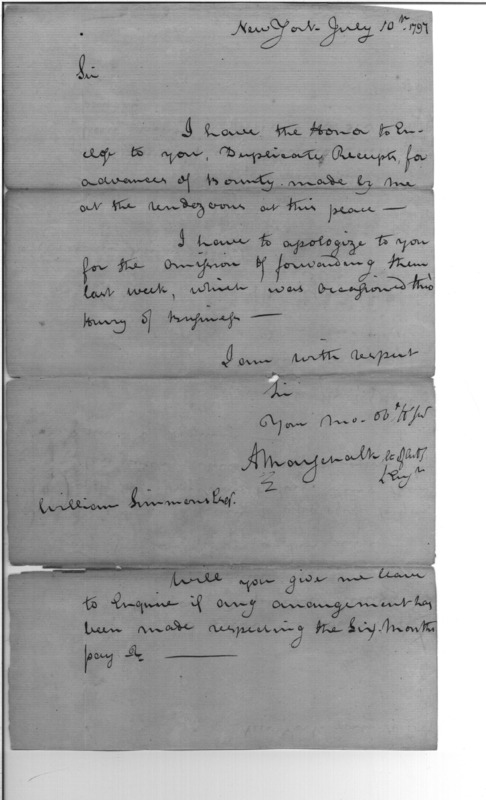 New York July 10th 1797
Sir
I have the Honor to En-
close to you, Duplicate Receipts, for
advances of Bounty made by me
at the rendezvous at this peace —
I have to apologize to you
for the omission of forwarding them
last week, which was occasioned thro
Hurry of Business —
I am with respect
Sir
Your mo. Obt
A Marschalk
William Simmons Esqr.
Will you give me leave
to Enquire if any arrangement has
been made respecting the Six Months
pay &c ———